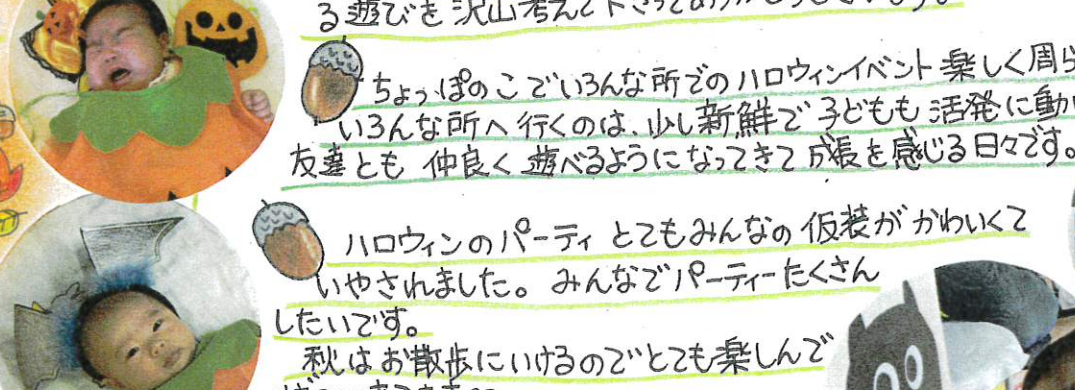 る遊びを沢山考えて下さってありがとうございます。
ちょっぽのこでいろんな所でのハロウィンイベント楽しく周ら
いろんな所へ行くのは、少し新鮮で子どもも活発に動い
友達とも仲良く遊べるようになってきて成長を感じる日々です。
ハロウィンのパーティとてもみんなの仮装がかわいくて
いやされました。みんなでパーティーたくさん
したいです。
秋はお散歩にいけるのでとても楽しんで